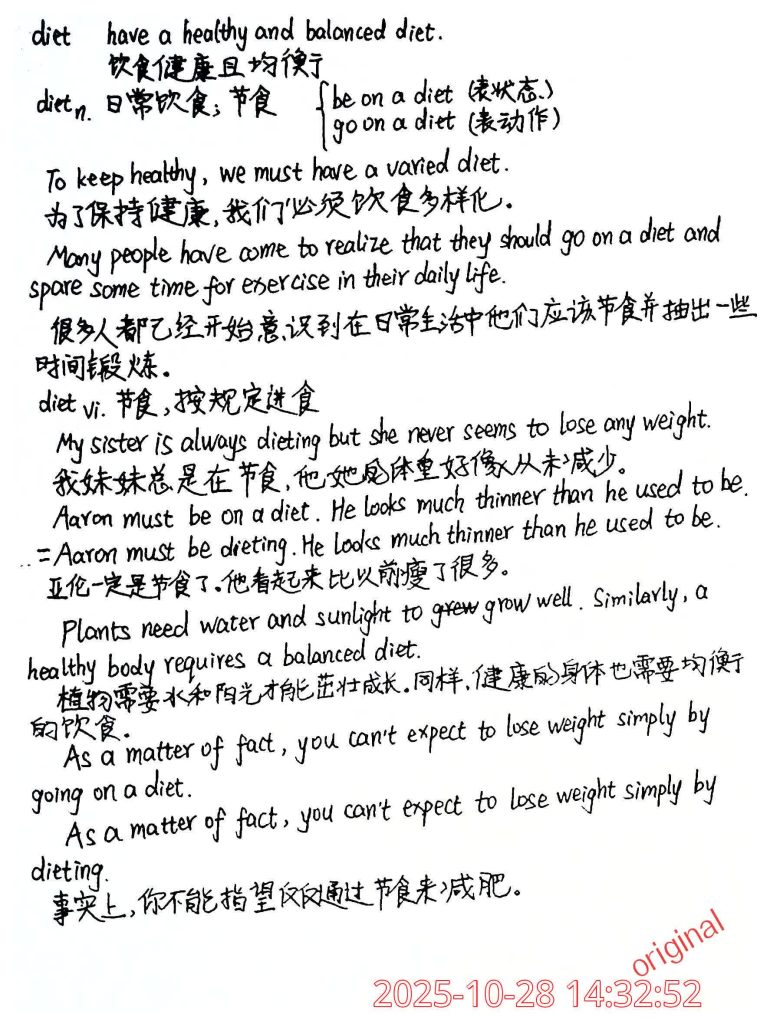 diet have a healthy and balanced diet.
饮食健康且均衡
diet n. 日常饮食；节食 be on a diet (表状态)
go on a diet (表动作)
To keep healthy, we must have a varied diet.
为了保持健康，我们必须饮食多样化。
Many people have come to realize that they should go on a diet and
spare some time for exercise in their daily life.
很多人都已经开始意识到在日常生活中他们应该节食并抽出一些
时间锻炼。
diet vi. 节食，按规定进食
My sister is always dieting but she never seems to lose any weight.
我妹妹总是在节食，但她的体重好像从未减少。
Aaron must be on a diet. He looks much thinner than he used to be.
=Aaron must be dieting. He looks much thinner than he used to be.
亚伦一定是节食了。他看起来比以前瘦了很多。
Plants need water and sunlight to grew grow well. Similarly, a
healthy body requires a balanced diet.
植物需要水和阳光才能茁壮成长。同样，健康的身体也需要均衡
的饮食。
As a matter of fact, you can't expect to lose weight simply by
going on a diet.
As a matter of fact, you can't expect to lose weight simply by
dieting.
事实上，你不能指望仅仅通过节食来减肥。
original
2025-10-28 14:32:52